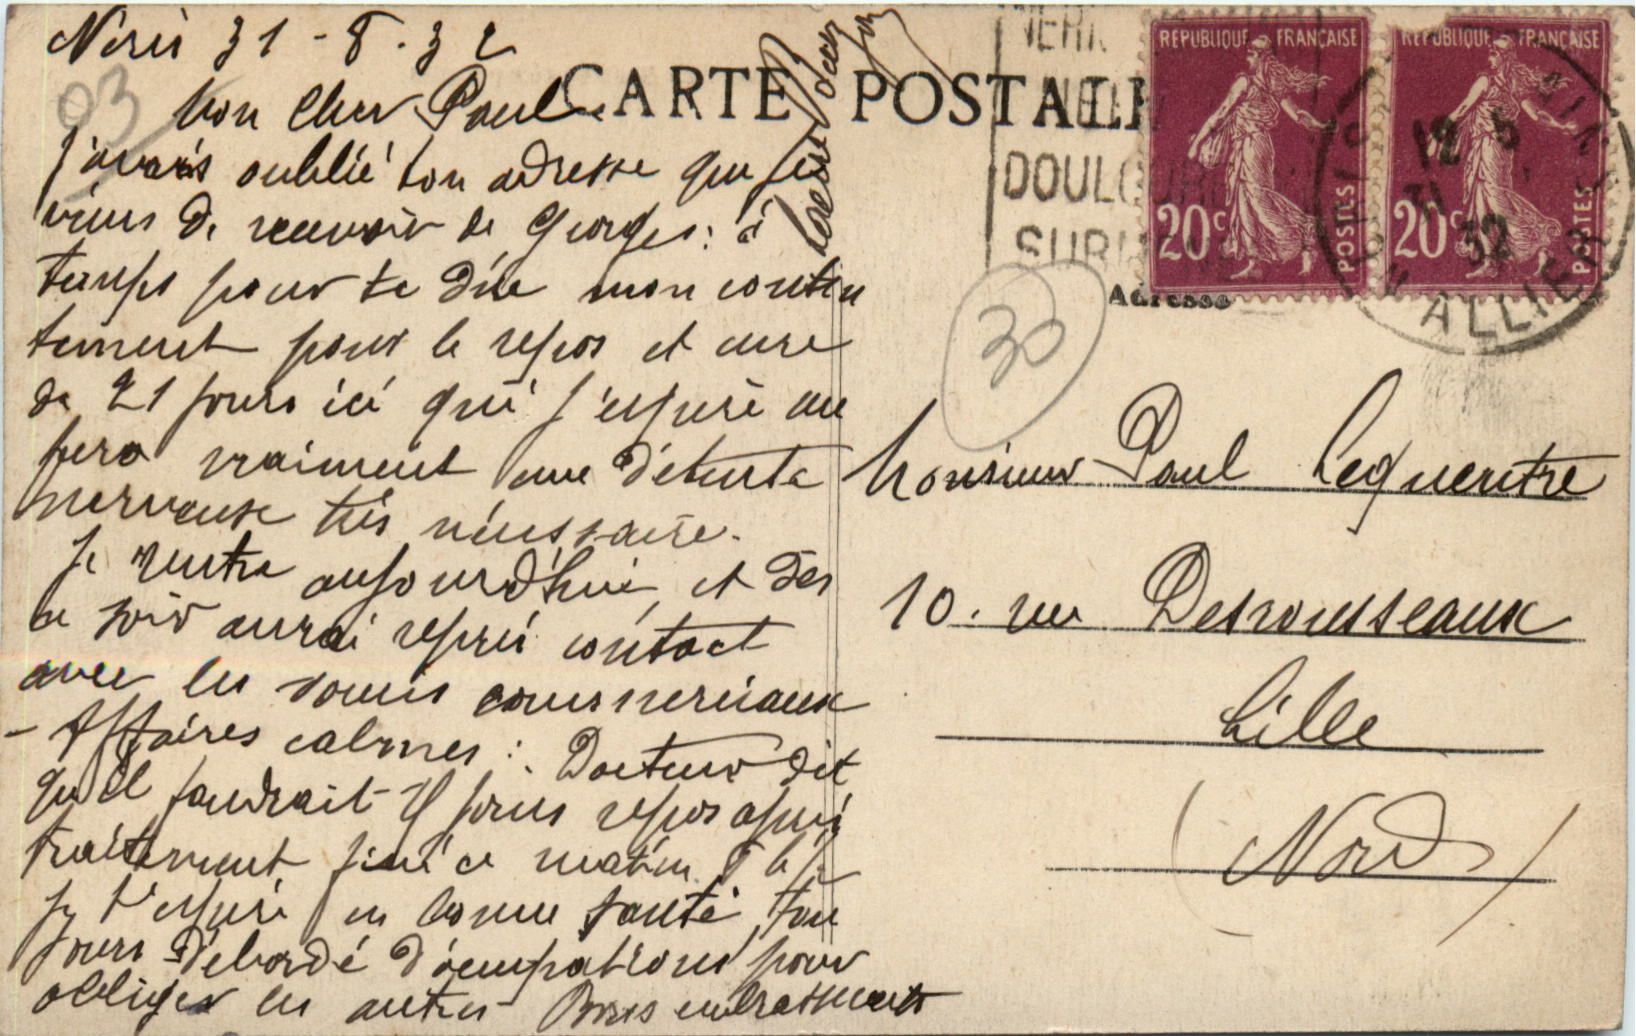 Néris 31-8.32
03
Mon Cher Paul
CARTE POSTALE
j'avais oublié ton adresse que je
viens de recevoir de Georges : à
temps pour te dire mon conten
tement pour le repos et cure
de 21 jours ici qui j'espère me
fera vraiment une détente
nerveuse très nécessaire.
Je rentre aujourd'hui, et dès
ce soir aurai repris contact
avec les soucis commerciaux
- Affaires calmes : Docteur dit
qu'il faudrait jours repos après
traitement fini ce matin 8 h ½
Je t'espère en bonne santé, tou
jours débordé d'occupations pour
obliger les autres Bons embrassements
NERI
DOULOUR
SUR
REPUBLIQUE FRANÇAISE
20c POSTES
REPUBLIQUE FRANÇAISE
20c POSTES
12
31
32
ALLIER
Adresse
30
Monsieur Paul Lequentre
10. rue Desrousseaux
Lille
(Nord)